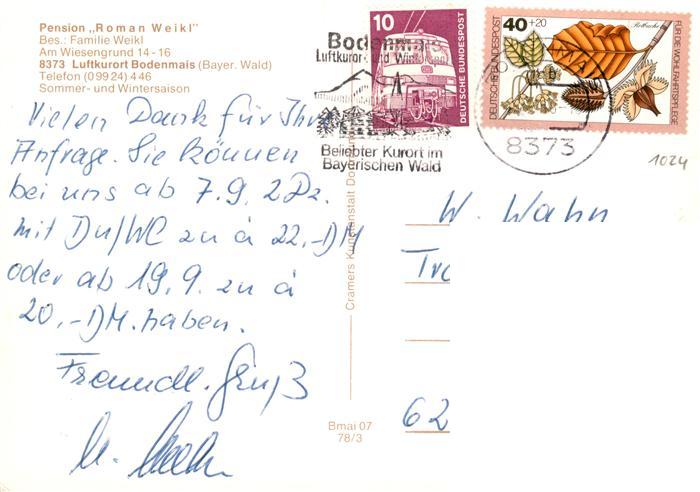 Pension „Roman Weikl"
Bes.: Familie Weikl
Am Wiesengrund 14-16
8373 Luftkurort Bodenmais (Bayer. Wald)
Telefon (09924) 446
Sommer- und Wintersaison
Vielen Dank für Ihre
Anfrage. Sie können
bei uns ab 7.9. 2 Dz.
mit Du/WC zu à 22,-DM
oder ab 19.9. zu à
20,-DM. haben.
Freundl. Gruß
10
DEUTSCHE BUNDESPOST
40+20
DEUTSCHE BUNDESPOST
Rotbuche
FÜR DIE WOHLFAHRTSPFLEGE
Bodenmais
Luftkurort- und
Beliebter Kurort im
Bayerischen Wald
8373
1024
Cramers Kunstanstalt
W. Wahn
62
Bmai 07
78/3